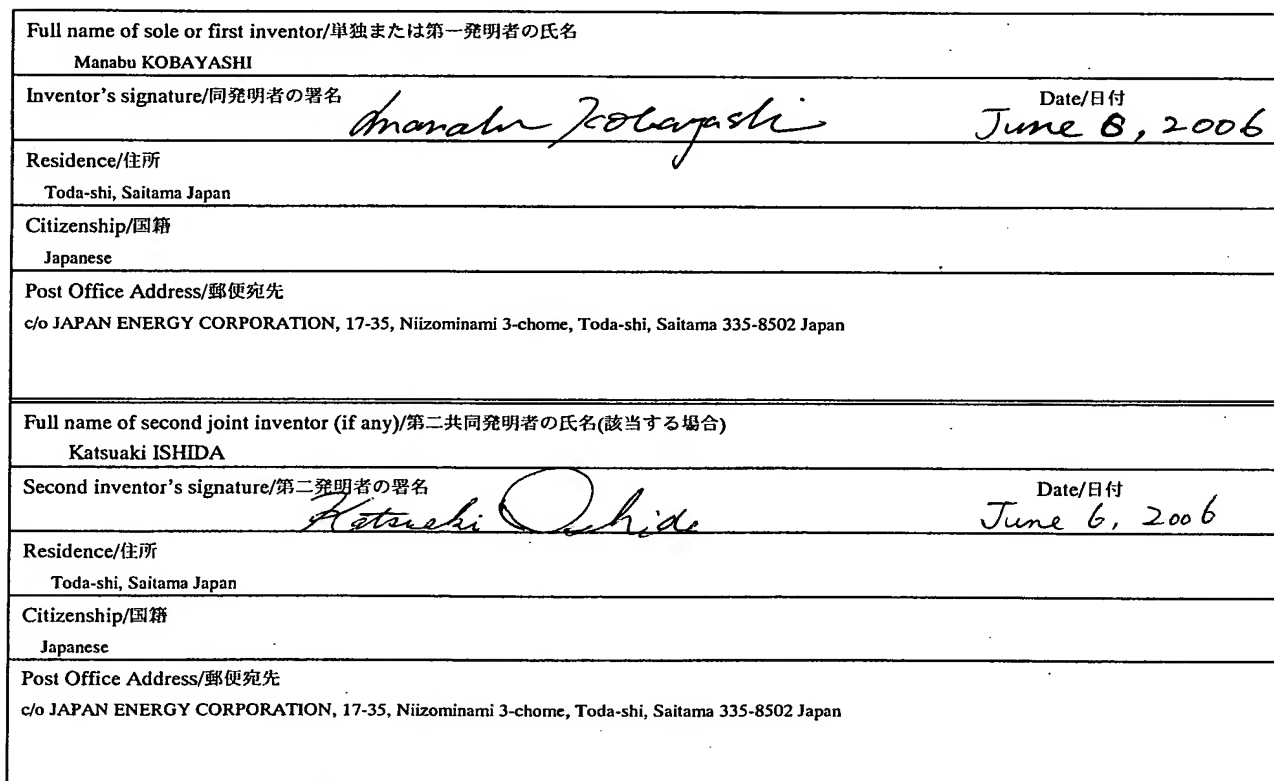 Full name of sole or first inventor/単独または第一発明者の氏名
Manabu KOBAYASHI
Inventor's signature/同発明者の署名 Date/日付
Manabu Kobayashi June 6, 2006
Residence/住所
Toda-shi, Saitama Japan
Citizenship/国籍
Japanese
Post Office Address/郵便宛先
c/o JAPAN ENERGY CORPORATION, 17-35, Niizominami 3-chome, Toda-shi, Saitama 335-8502 Japan
Full name of second joint inventor (if any)/第二共同発明者の氏名(該当する場合)
Katsuaki ISHIDA
Second inventor's signature/第二発明者の署名 Date/日付
Katsuaki Ishida June 6, 2006
Residence/住所
Toda-shi, Saitama Japan
Citizenship/国籍
Japanese
Post Office Address/郵便宛先
c/o JAPAN ENERGY CORPORATION, 17-35, Niizominami 3-chome, Toda-shi, Saitama 335-8502 Japan